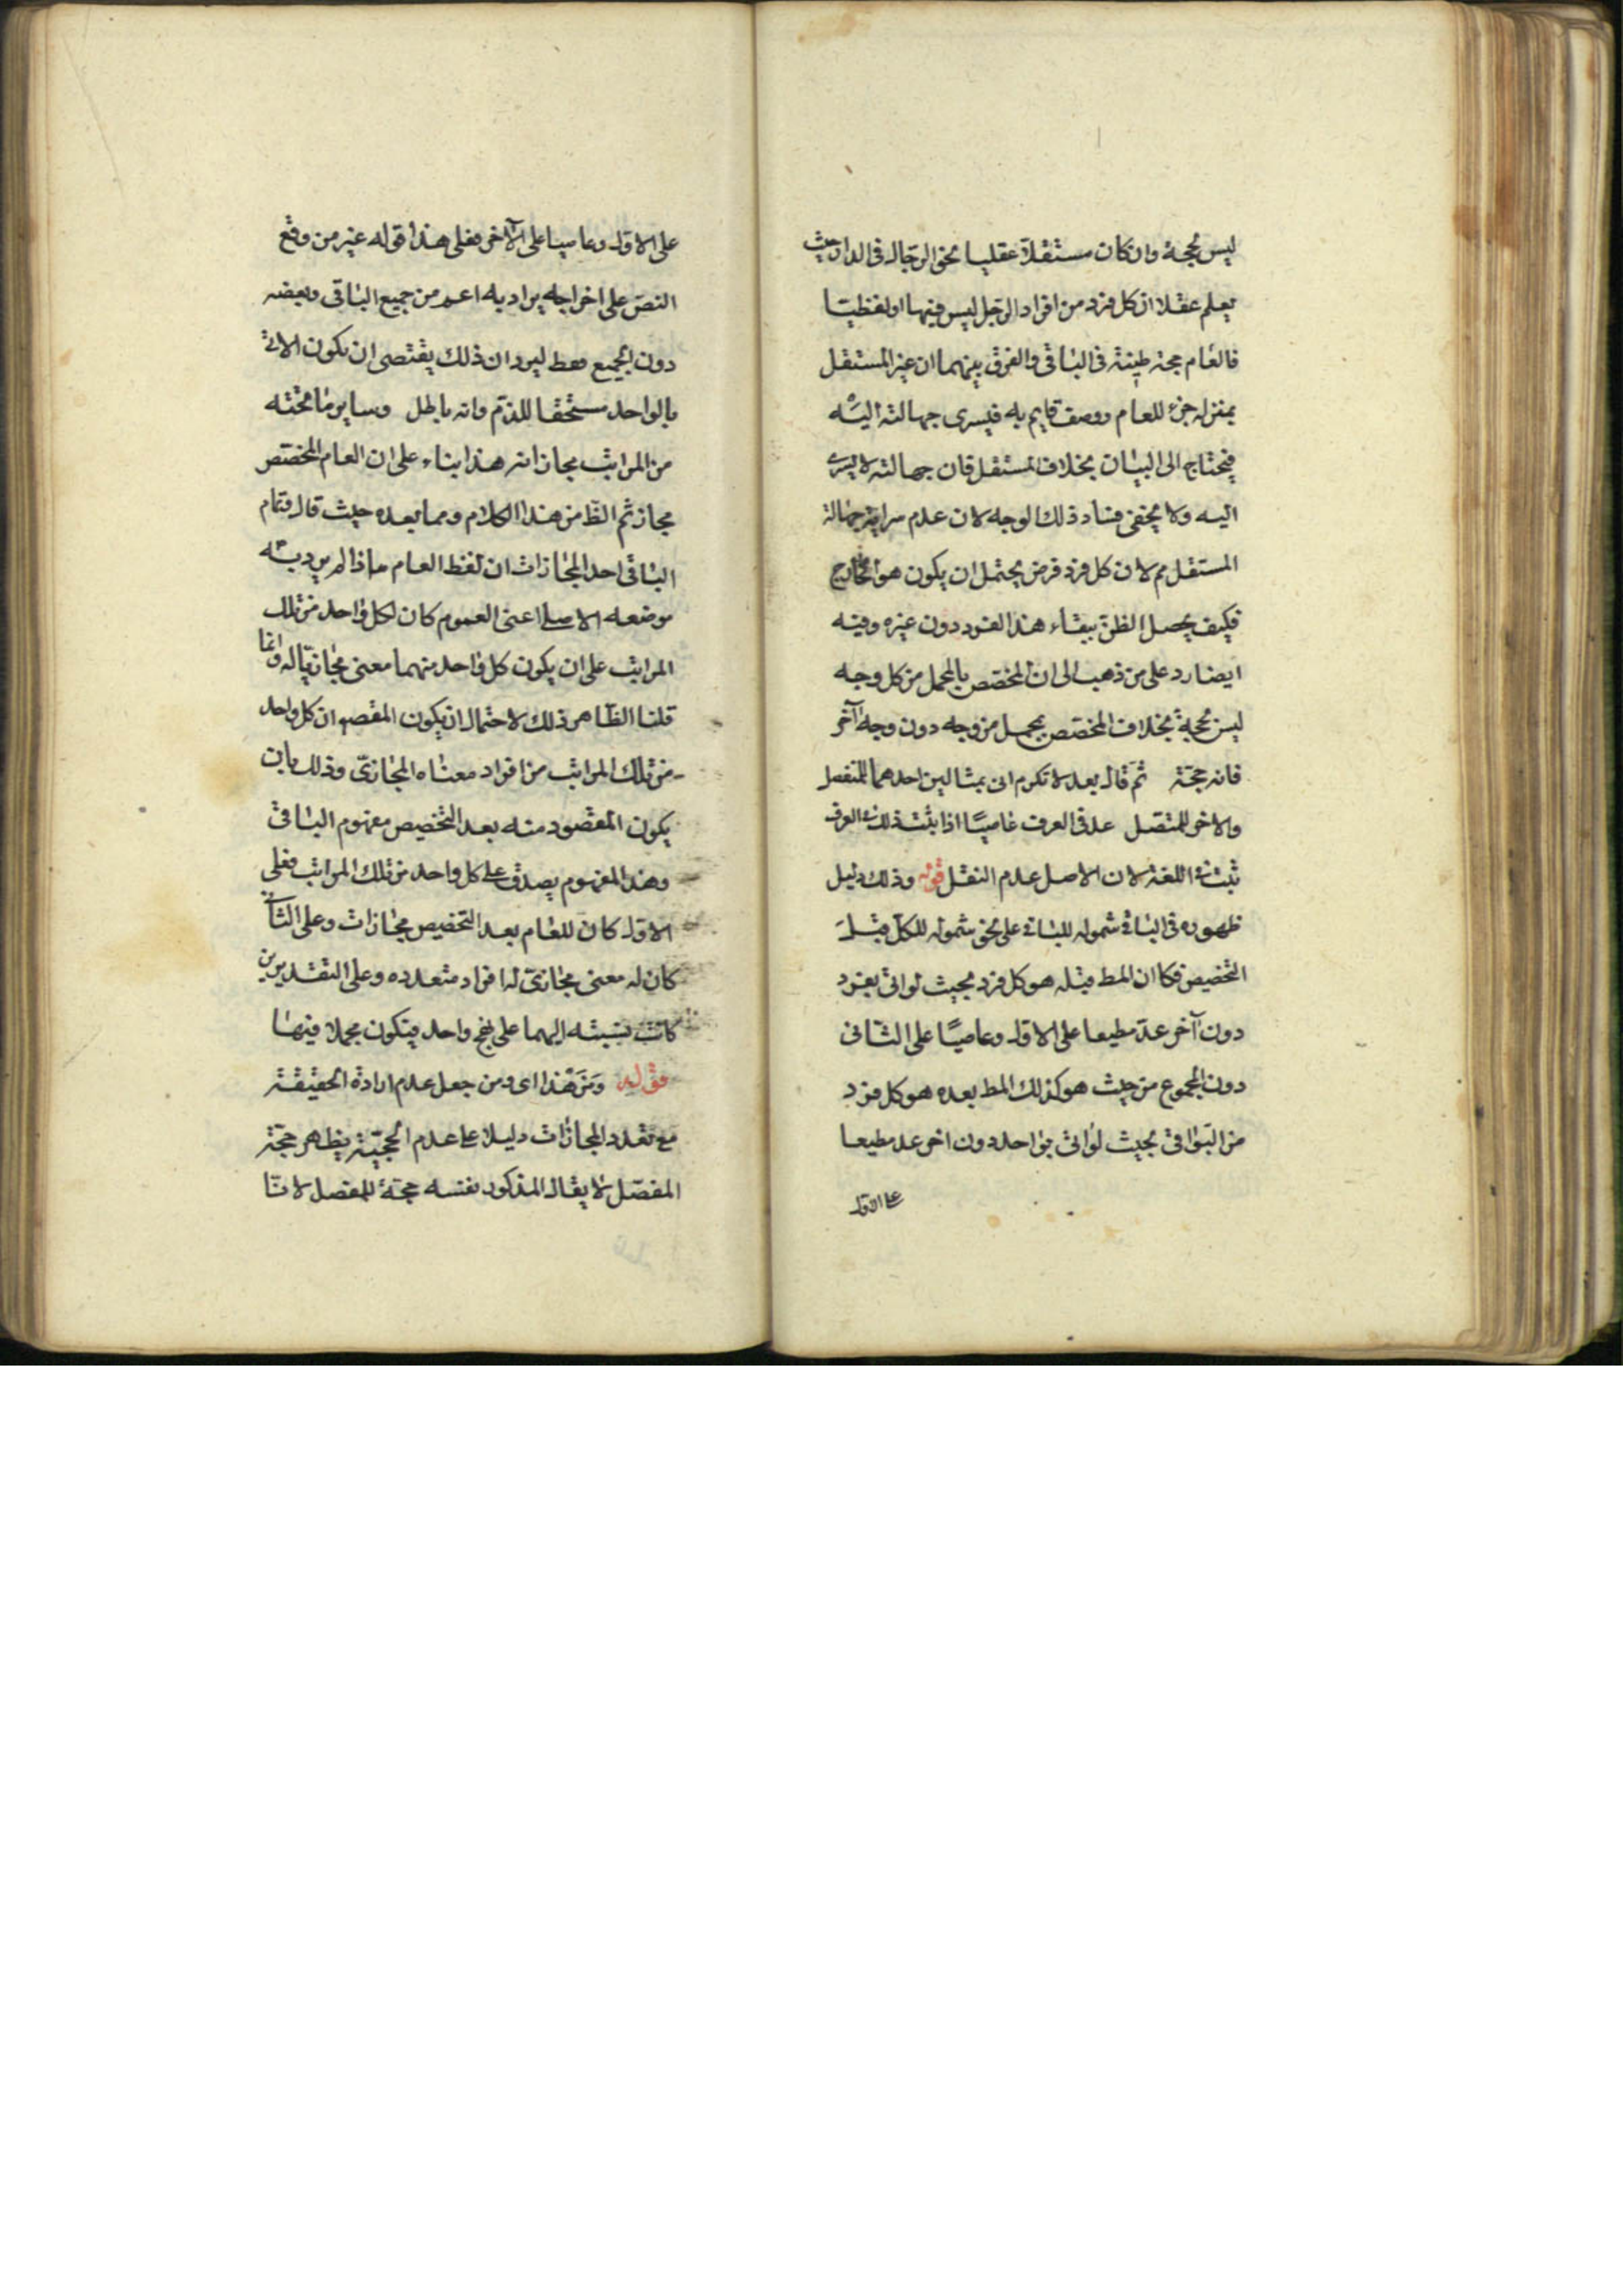 ليس بحجة وان كان مستقلا عقليا نحو الرجال في الدار حيث
يعلم عقلا ان كل فرد من افراد الرجل ليس فيها او لفظيا
فالعام حجة ظنية في الباقي والفرق بينهما ان غير المستقل
بمنزلة جزء للعام ووصف قايم به فيسرى جهالته اليه
فيحتاج الى البيان بخلاف المستقل فان جهالته لا يسرى
اليه ولا يخفى فساد ذلك الوجه لان عدم سراية جهالة
المستقل مم لان كل فرد فرض يحتمل ان يكون هو المخارج
فكيف يحصل الظن ببقاء هذا الفرد دون غيره وفيه
ايضا رد على من ذهب الى ان المخصص بالمجمل من كل وجه
ليس بحجة بخلاف المخصص بمجمل من وجه دون وجه آخر
فانه حجة ثم قال بعد لا تكرم اتى بمثالين احدهما للمنفصل
والاخر للمتصل عد في العرف عاصيا اذا ثبت ذلك في العرف
ثبت في اللغة لان الاصل عدم النقل قوله وذلك دليل
ظهوره في الباقي شموله للباقي على نحو شموله للكل قبل
التخصيص فكما ان المط قبله هو كل فرد بحيث لو اتى بفرد
دون آخر عد مطيعا على الاول وعاصيا على الثاني
دون المجموع من حيث هو كذلك المط بعده هو كل فرد
من البواقي بحيث لو اتى بواحد دون اخر عد مطيعا
على الاول
على الاول وعاصيا على الآخر فعلى هذا قوله غير من وقع
النص على اخراجه يراد به اعم من جميع الباقي وبعضه
دون الجميع فقط ليرد ان ذلك يقتضى ان يكون الاتي
بالواحد مستحقا للذم وانه باطل وساير ما تحته
من المراتب مجازاته هذا بناء على ان العام المخصص
مجاز ثم الظ من هذا الكلام ومما بعده حيث قال فتمام
الباقي احد المجازات ان لفظ العام ما ذا لم يرد به
موضعه الاصلى اعنى العموم كان لكل واحد من تلك
المراتب على ان يكون كل واحد منهما معنى مجازيا له وانما
قلنا الظاهر ذلك لاحتمال ان يكون المقصو ان كل واحد
من تلك المراتب من افراد معناه المجازى وذلك بان
يكون المقصود منه بعد التخصيص مفهوم الباقي
وهذا المفهوم يصدق على كل واحد من تلك المراتب فعلى
الاول كان للعام بعد التخصيص مجازات وعلى الثاني
كان له معنى مجازى له افراد متعدده وعلى التقديرين
كانت نسبته اليهما على نهج واحد فيكون مجملا فيها
قوله ومن هذا اى ومن جعل عدم ارادة الحقيقة
مع تعدد المجازات دليلا على عدم الحجية يظهر حجة
المفصل لا يقال المذكور نفسه حجة للمفصل لانا